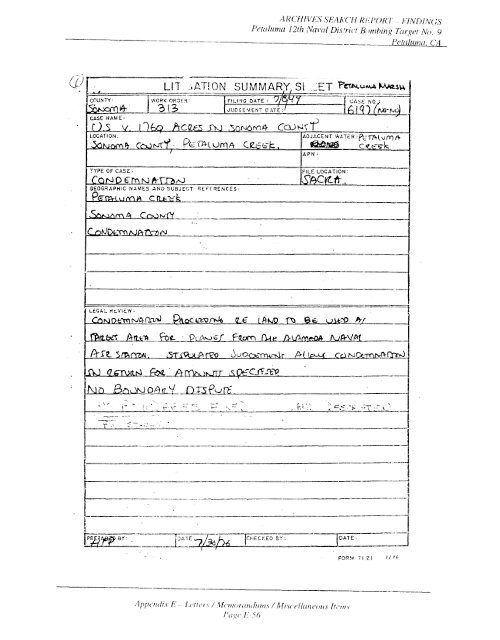 ARCHIVES SEARCH REPORT – FINDINGS
Petaluma 12th Naval District Bombing Target No. 9
Petaluma, CA
LIT ATION SUMMARY SI ET PETALUMA MARSH
COUNTY: WORK ORDER: FILING DATE: CASE NO.:
SONOMA 313 JUDGEMENT DATE:
CASE NAME:
U.S v. 1760 ACRES IN SONOMA COUNTY
LOCATION: ADJACENT WATER: PETALUMA
SONOMA COUNTY, PETALUMA CREEK. CREEK
APN:
TYPE OF CASE: FILE LOCATION:
CONDEMNATION SACRA.
GEOGRAPHIC NAMES AND SUBJECT REFERENCES:
PETALUMA CREEK
SONOMA COUNTY
CONDEMNATION
LEGAL REVIEW:
CONDEMNATION PROCEEDING RE LAND TO BE USED AS
TARGET AREA FOR PLANES FROM THE ALAMEDA NAVAL
AIR STATION. STIPULATED JUDGEMENT ALLOW CONDEMNATION
IN RETURN FOR AMOUNTS SPECIFIED
NO BOUNDARY DISPUTE
PREPARED BY: DATE: 7/30/76 CHECKED BY: DATE:
FORM 71.21 1/76
Appendix E – Letters / Memorandums / Miscellaneous Items
Page E-56